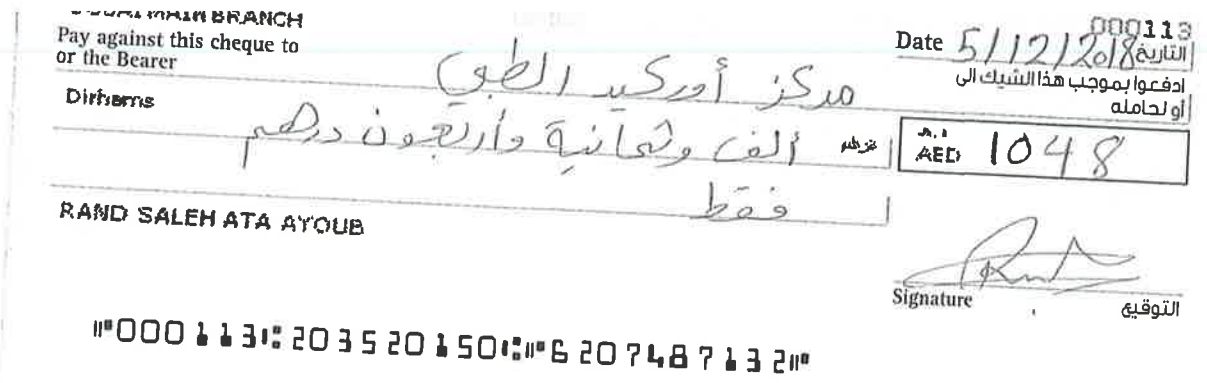 DUBAI MAIN BRANCH
000113
Pay against this cheque to
or the Bearer
مركز أوركيد الطبي
Date 5/12/2018 التاريخ
ادفعوا بموجب هذا الشيك الى
أو لحامله
Dirhams
ألف وثمانية وأربعون درهم درهم
AED 1048
فقط
RAND SALEH ATA AYOUB
Signature التوقيع
⑈000113⑆203520150⑆⑈6207487132⑈